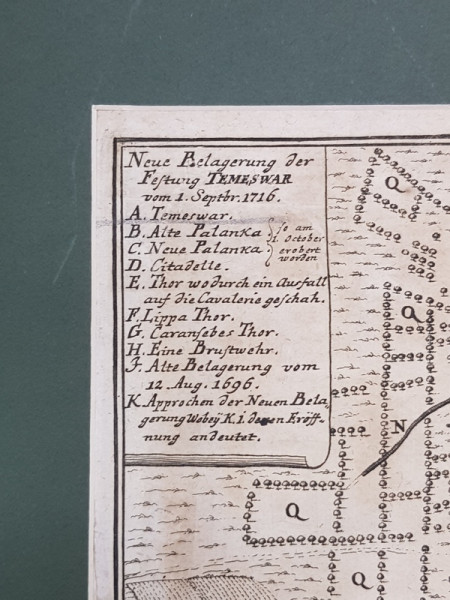 Neue Belagerung der
Festung TEMESWAR
vom 1. Septbr. 1716.
A. Temeswar.
B. Alte Palanka
C. Neue Palanka
so am
1. October
erobert
worden
D. Citadelle.
E. Thor wodurch ein Ausfall
auf die Cavalerie geschah.
F. Lippa Thor.
G. Caransebes Thor.
H. Eine Brustwehr.
J. Alte Belagerung vom
12. Aug. 1696.
K. Approchen der Neuen Bela-
gerung Wobeÿ K. 1. deren Eröff-
nung andeutet.
Q
Q
N
Q
Q